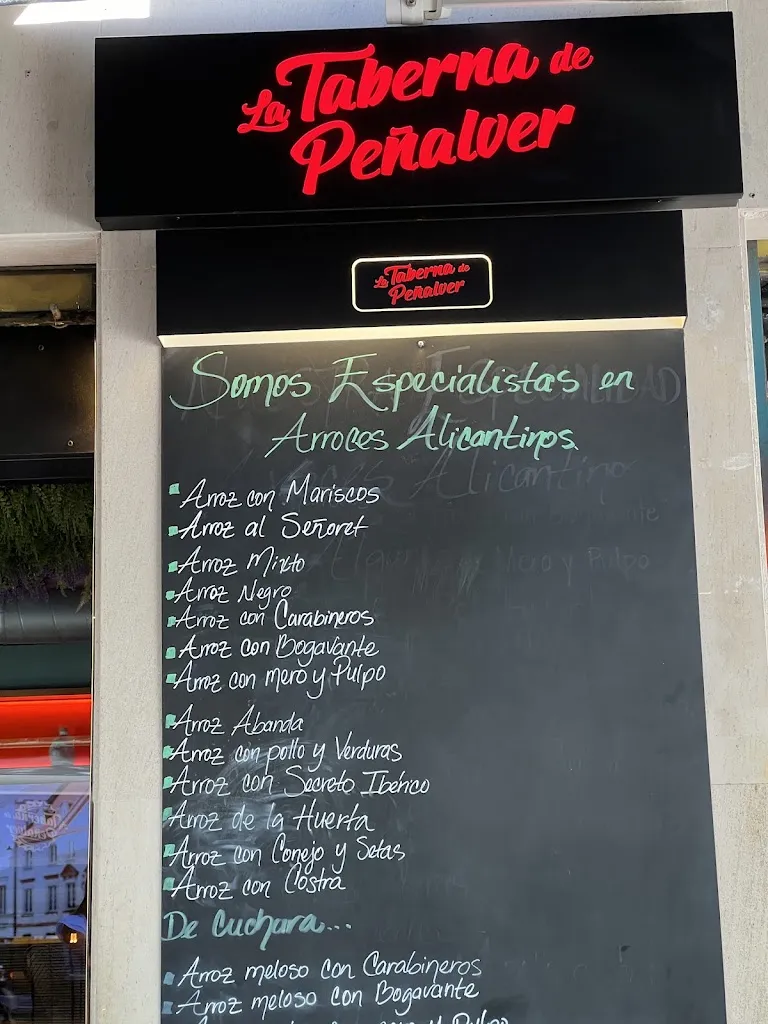 La Taberna de
Peñalver
La Taberna de
Peñalver
Somos Especialistas en
Arroces Alicantinos
Arroz con Mariscos
Arroz al Señoret
Arroz Mixto
Arroz Negro
Arroz con Carabineros
Arroz con Bogavante
Arroz con mero y Pulpo
Arroz Abanda
Arroz con pollo y Verduras
Arroz con Secreto Ibérico
Arroz de la Huerta
Arroz con Conejo y Setas
Arroz con Costra
De Cuchara...
Arroz meloso con Carabineros
Arroz meloso con Bogavante
y Pulpo